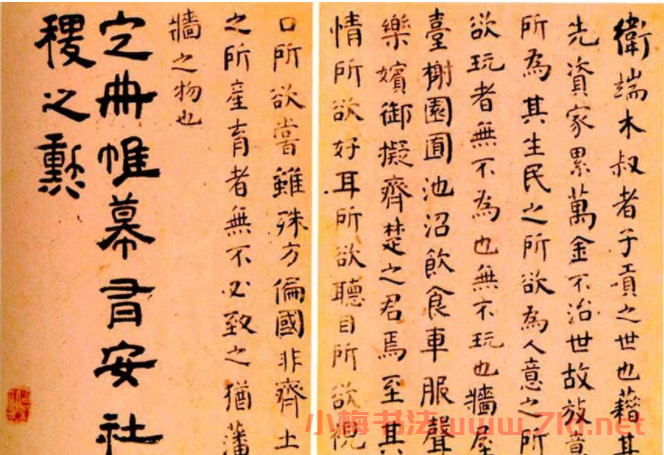 衛端木叔者子貢之世也藉其
先資家累萬金不治世故放意
所為其生民之所欲為人意之所
欲玩者無不為也無不玩也牆屋
臺榭園囿池沼飲食車服聲
樂嬪御擬齊楚之君焉至其
情所欲好耳所欲聽目所欲視
口所欲嘗雖殊方偏國非齊土
之所產育者無不必致之猶藩
牆之物也
定冊帷幕有安社
稷之勲
小梅书法www.7kl.net